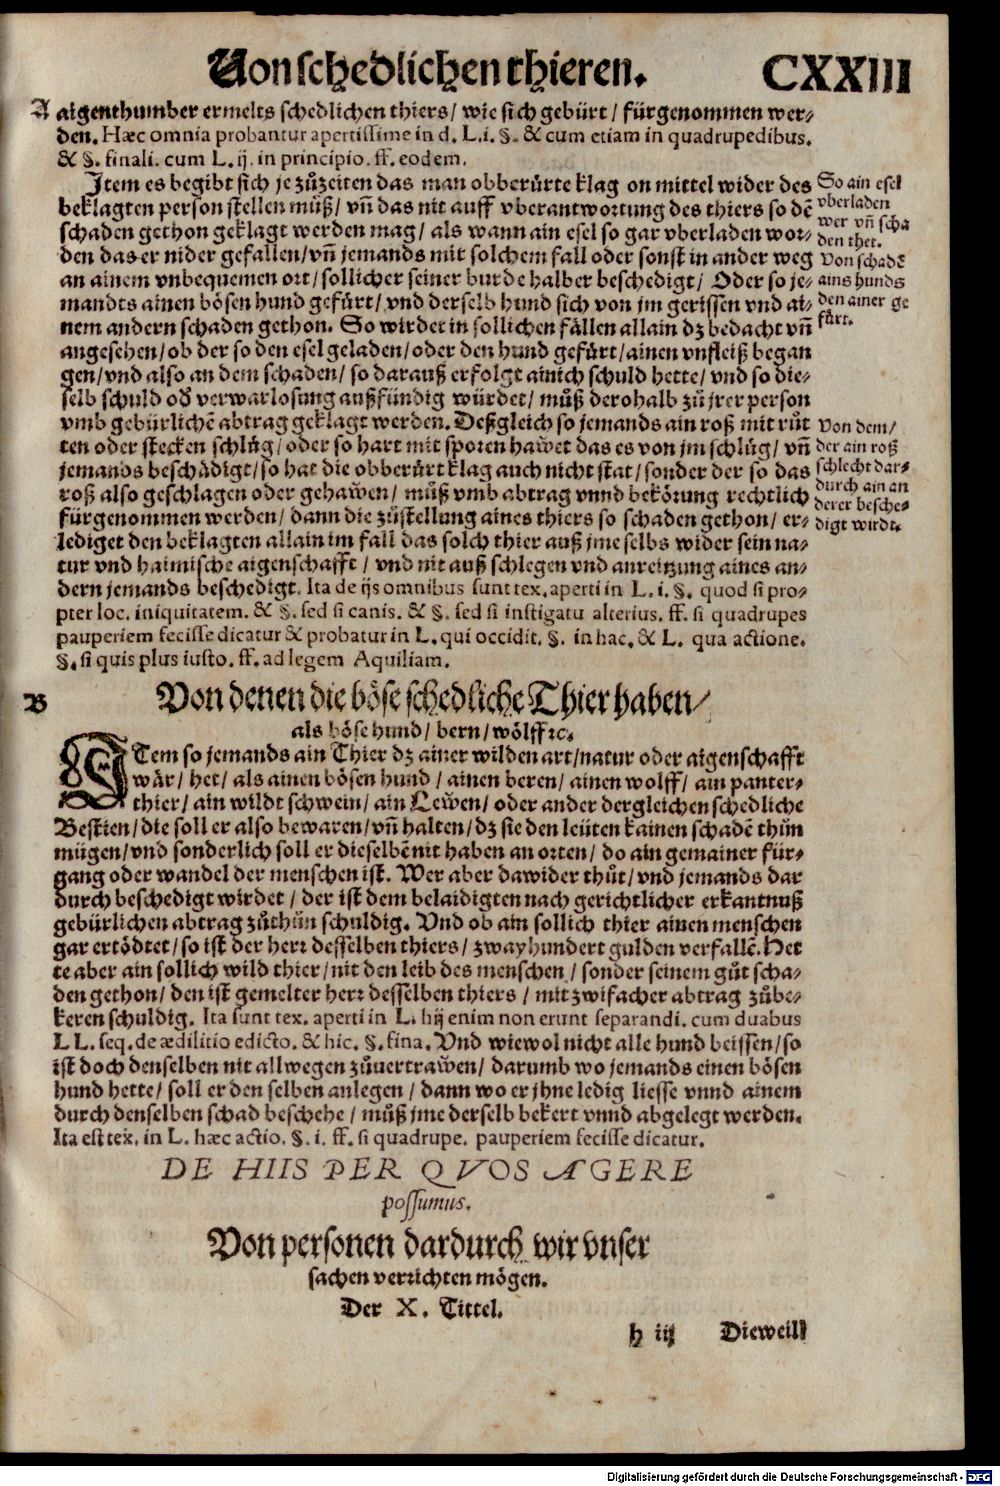 Von schedlichen thieren. CXXIII
A aigenthumber ermelts schedlichen thiers/ wie sich gebürt/ fürgenommen wer-
den. Hæc omnia probantur apertissime in d. L. i. §. & cum etiam in quadrupedibus.
& §. finali. cum L. ij. in principio. ff. eodem.
Item es begibt sich je zůzeiten das man obberürte klag on mittel wider des
beklagten person stellen můß/ vñ das nit auff vberantwortung des thiers so dē
schaden gethon geklagt werden mag/ als wann ain esel so gar vberladen wor-
den das er nider gefallen/ vñ jemands mit solchem fall oder sonst in ander weg
an ainem vnbequemen ort/ sollicher seiner burde halber beschedigt/ Oder so je-
mandts ainen bösen hund gefürt/ vnd derselb hund sich von jm gerissen vnd ai-
nem andern schaden gethon. So wirdet in sollichen fällen allain dz bedacht vñ
angesehen/ ob der so den esel geladen/ oder den hund gefürt/ ainen vnfleiß began
gen/ vnd also an dem schaden/ so darauß erfolgt ainich schuld hette/ vnd so die-
selb schuld oď verwarlosung außfündig würdet/ můß derohalb zů jrer person
vmb gebürlichē abtrag geklagt werden. Deßgleich so jemands ain roß mit růt
ten oder stecken schlůg/ oder so hart mit sporen hawet das es von jm schlůg/ vñ
jemands beschädigt/ so hat die obberürt klag auch nicht stat/ sonder der so das
roß also geschlagen oder gehawen/ můß vmb abtrag vnnd bekörung rechtlich
fürgenommen werden/ dann die zůstellung aines thiers so schaden gethon/ er-
lediget den beklagten allain im fall das solch thier auß jme selbs wider sein na-
tur vnd haimische aigenschafft/ vnd nit auß schlegen vnd anreitzung aines an-
dern jemands beschedigt. Ita de ijs omnibus sunt tex. aperti in L. i. §. quod si pro-
pter loc. iniquitatem. & §. sed si canis. & §. sed si instigatu alterius. ff. si quadrupes
pauperiem fecisse dicatur & probatur in L. qui occidit. §. in hac. & L. qua actione.
§. si quis plus iusto. ff. ad legem Aquiliam.
So ain esel
vberladen
wer vñ scha
den thet.
Von schadē
ains hunds
den ainer ge
fürt.
Von dem/
der ain roß
schlecht dar-
durch ain an
derer besche-
digt wirdt.
B Von denen die böse schedliche Thier haben/
als böse hund/ bern/ wölff ꝛc.
ITem so jemands ain Thier dz ainer wilden art/ natur oder aigenschafft
wär/ het/ als ainen bösen hund/ ainen beren/ ainen wolff/ ain panter-
thier/ ain wildt schwein/ ain Lewen/ oder ander dergleichen schedliche
Bestien/ die soll er also bewaren/ vñ halten/ dz sie den leüten kainen schadē thůn
mügen/ vnd sonderlich soll er dieselbē nit haben an orten/ do ain gemainer für-
gang oder wandel der menschen ist. Wer aber dawider thůt/ vnd jemands dar
durch beschedigt wirdet/ der ist dem belaidigten nach gerichtlicher erkantnuß
gebürlichen abtrag zůthůn schuldig. Vnd ob ain sollich thier ainen menschen
gar ertödtet/ so ist der herr desselben thiers/ zway hundert gulden verfallē. Het
te aber ain sollich wild thier/ nit den leib des menschen/ sonder seinem gůt scha-
den gethon/ den ist gemelter herr desselben thiers/ mit zwifacher abtrag zůbe-
keren schuldig. Ita sunt tex. aperti in L. hij enim non erunt separandi. cum duabus
L L. seq. de ædilitio edicto. & hic. §. fina. Vnd wiewol nicht alle hund beissen/ so
ist doch denselben nit allwegen zůuertrawen/ darumb wo jemands einen bösen
hund hette/ soll er den selben anlegen/ dann wo er jhne ledig liesse vnnd ainem
durch denselben schad beschehe/ můß jme derselb bekert vnnd abgelegt werden.
Ita est tex. in L. hæc actio. §. i. ff. si quadrupe. pauperiem fecisse dicatur.
DE HIIS PER QVOS AGERE
possumus.
Von personen dardurch wir vnser
sachen verrichten mögen.
Der X. Tittel.
h iij Dieweill
Digitalisierung gefördert durch die Deutsche Forschungsgemeinschaft - DFG